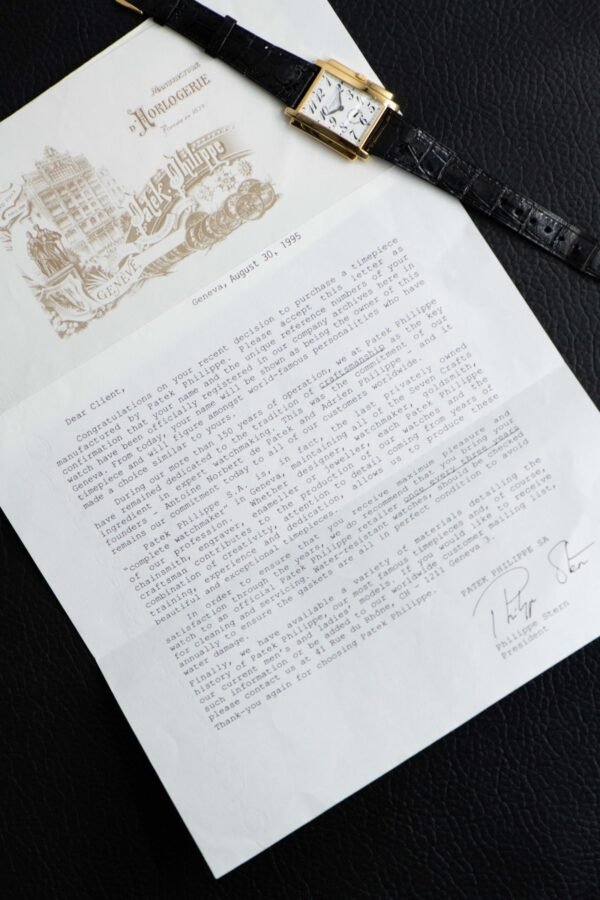 Manufacture
D'HORLOGERIE
Fondée en 1839
Patek Philippe
GENÈVE
Geneva, August 30, 1995
Dear Client,
Congratulations on your recent decision to purchase a timepiece
manufactured by Patek Philippe. Please accept this letter as
confirmation that your name and the unique reference numbers of your
watch have been officially registered in our company archives here in
Geneva. From today, your name will be shown as being the owner of this
timepiece and will figure amongst world-famous personalities who have
made a choice similar to yours.
During our more than 150 years of operation, we at Patek Philippe
have remained dedicated to the tradition of craftsmanship as the key
ingredient in expert watchmaking. This was the commitment of our
founders - Antoine Norbert de Patek and Adrien Philippe - and it
remains our commitment today to all of our customers worldwide.
Patek Philippe S.A. is, in fact, the last privately owned
"complete watchmaker" in Geneva, maintaining all of the Seven Crafts
of our profession. Whether designer, watchmaker, goldsmith,
chainsmith, engraver, enameller or jeweller, each Patek Philippe
craftsman contributes to the production of our watches and the
combination of creativity, attention to detail coming from years of
training, experience and dedication, allows us to produce these
beautiful and exceptional timepieces.
In order to ensure that you receive maximum pleasure and
satisfaction through the years, we do recommend that you bring your
watch to an official Patek Philippe retailer once every three years
for cleaning and servicing. Water-resistant watches, should be checked
annually to ensure the gaskets are all in perfect condition to avoid
water damage.
Finally, we have available a variety of materials detailing the
history of Patek Philippe, our most famous timepieces and, of course,
our current men's and ladies' models. If you would like to receive
such information or be added to our worldwide customer mailing list,
please contact us at 41 Rue du Rhône, CH - 1211 Geneva 3.
Thank-you again for choosing Patek Philippe.
PATEK PHILIPPE SA
Philipp Stern
Philippe Stern
President